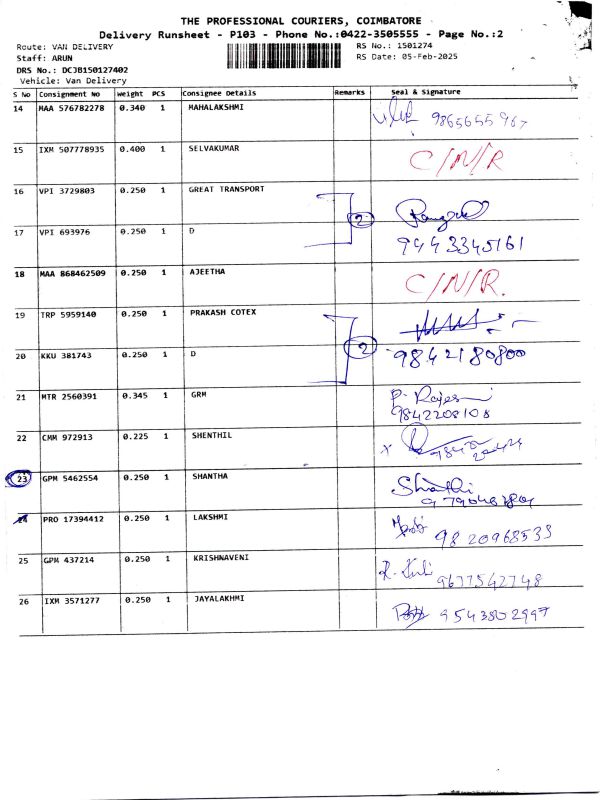 THE PROFESSIONAL COURIERS, COIMBATORE
Delivery Runsheet - P103 - Phone No.:0422-3505555 - Page No.:2
Route: VAN DELIVERY RS No.: 1501274
Staff: ARUN RS Date: 05-Feb-2025
DRS No.: DCJB150127402
Vehicle: Van Delivery
S No Consignment No Weight PCS Consignee Details Remarks Seal & Signature
14 MAA 576782278 0.340 1 MAHALAKSHMI 9865655967
15 IXM 507778935 0.400 1 SELVAKUMAR C/N/R
16 VPI 3729803 0.250 1 GREAT TRANSPORT 2
17 VPI 693976 0.250 1 D 9443345161
18 MAA 868462509 0.250 1 AJEETHA C/N/R.
19 TRP 5959140 0.250 1 PRAKASH COTEX 2
20 KKU 381743 0.250 1 D 9842180800
21 MTR 2560391 0.345 1 GRM P. Rajes
9842208108
22 CMM 972913 0.225 1 SHENTHIL
23 GPM 5462554 0.250 1 SHANTHA Shanthi
24 PRO 17394412 0.250 1 LAKSHMI 9820968533
25 GPM 437214 0.250 1 KRISHNAVENI 9677542748
26 IXM 3571277 0.250 1 JAYALAKHMI 9543802997